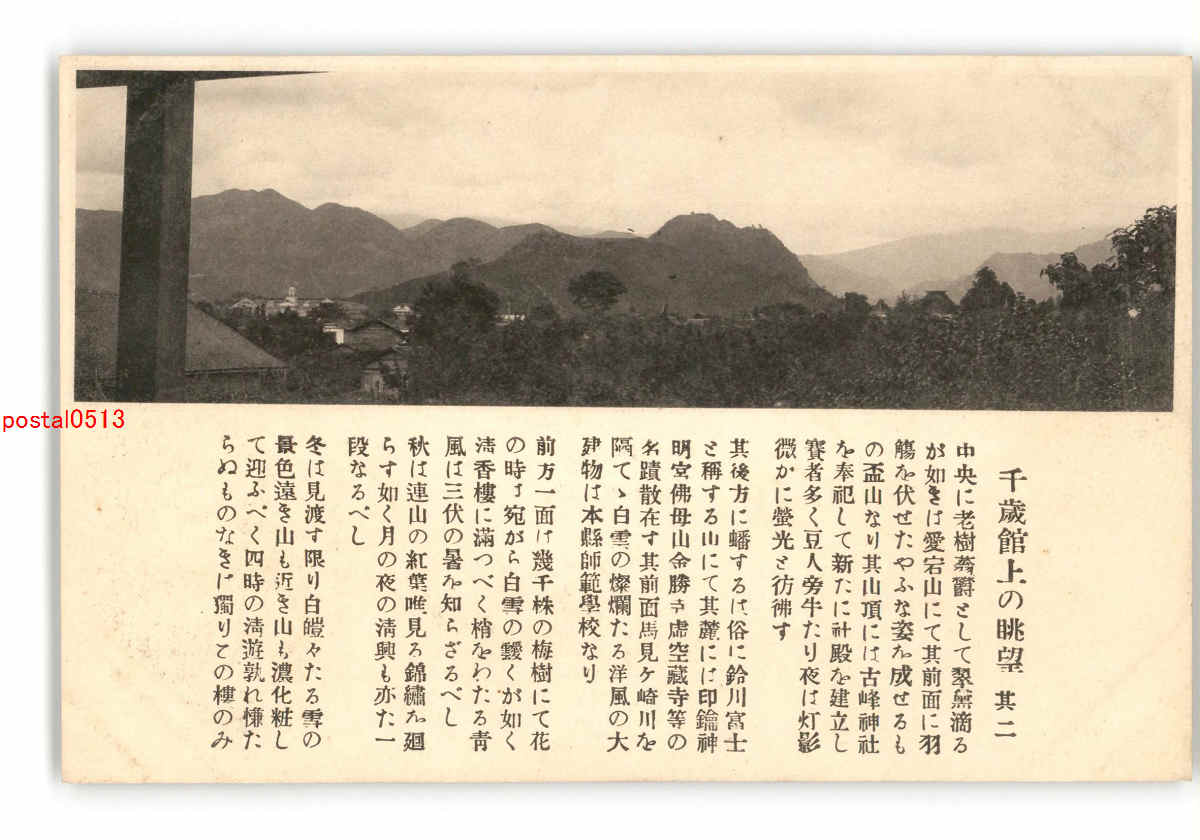 千歲館上の眺望 其二
中央に老樹蓊欝として翠黛滴る
が如きは愛宕山にて其前面に羽
觴を伏せたやふな姿を成せるも
の盃山なり其山頂には古峰神社
を奉祀して新たに社殿を建立し
賽者多く豆人旁牛たり夜は灯影
微かに螢光と彷彿す
其後方に蟠するは俗に鈴川富士
と稱する山にて其麓には印鑰神
明宮佛母山金勝寺虛空藏寺等の
名蹟散在す其前面馬見ケ崎川を
隔てゝ白雲の燦爛たる洋風の大
建物は本縣師範學校なり
前方一面は幾千株の梅樹にて花
の時は宛がら白雪の靉くが如く
淸香樓に滿つべく梢をわたる靑
風は三伏の暑を知らざるべし
秋は連山の紅葉唯見る錦繡を廻
らす如く月の夜の淸興も亦た一
段なるべし
冬は見渡す限り白皚々たる雪の
景色遠き山も近き山も濃化粧し
て迎ふべく四時の淸遊孰れ慊た
らぬものなきは獨りこの樓のみ
postal0513